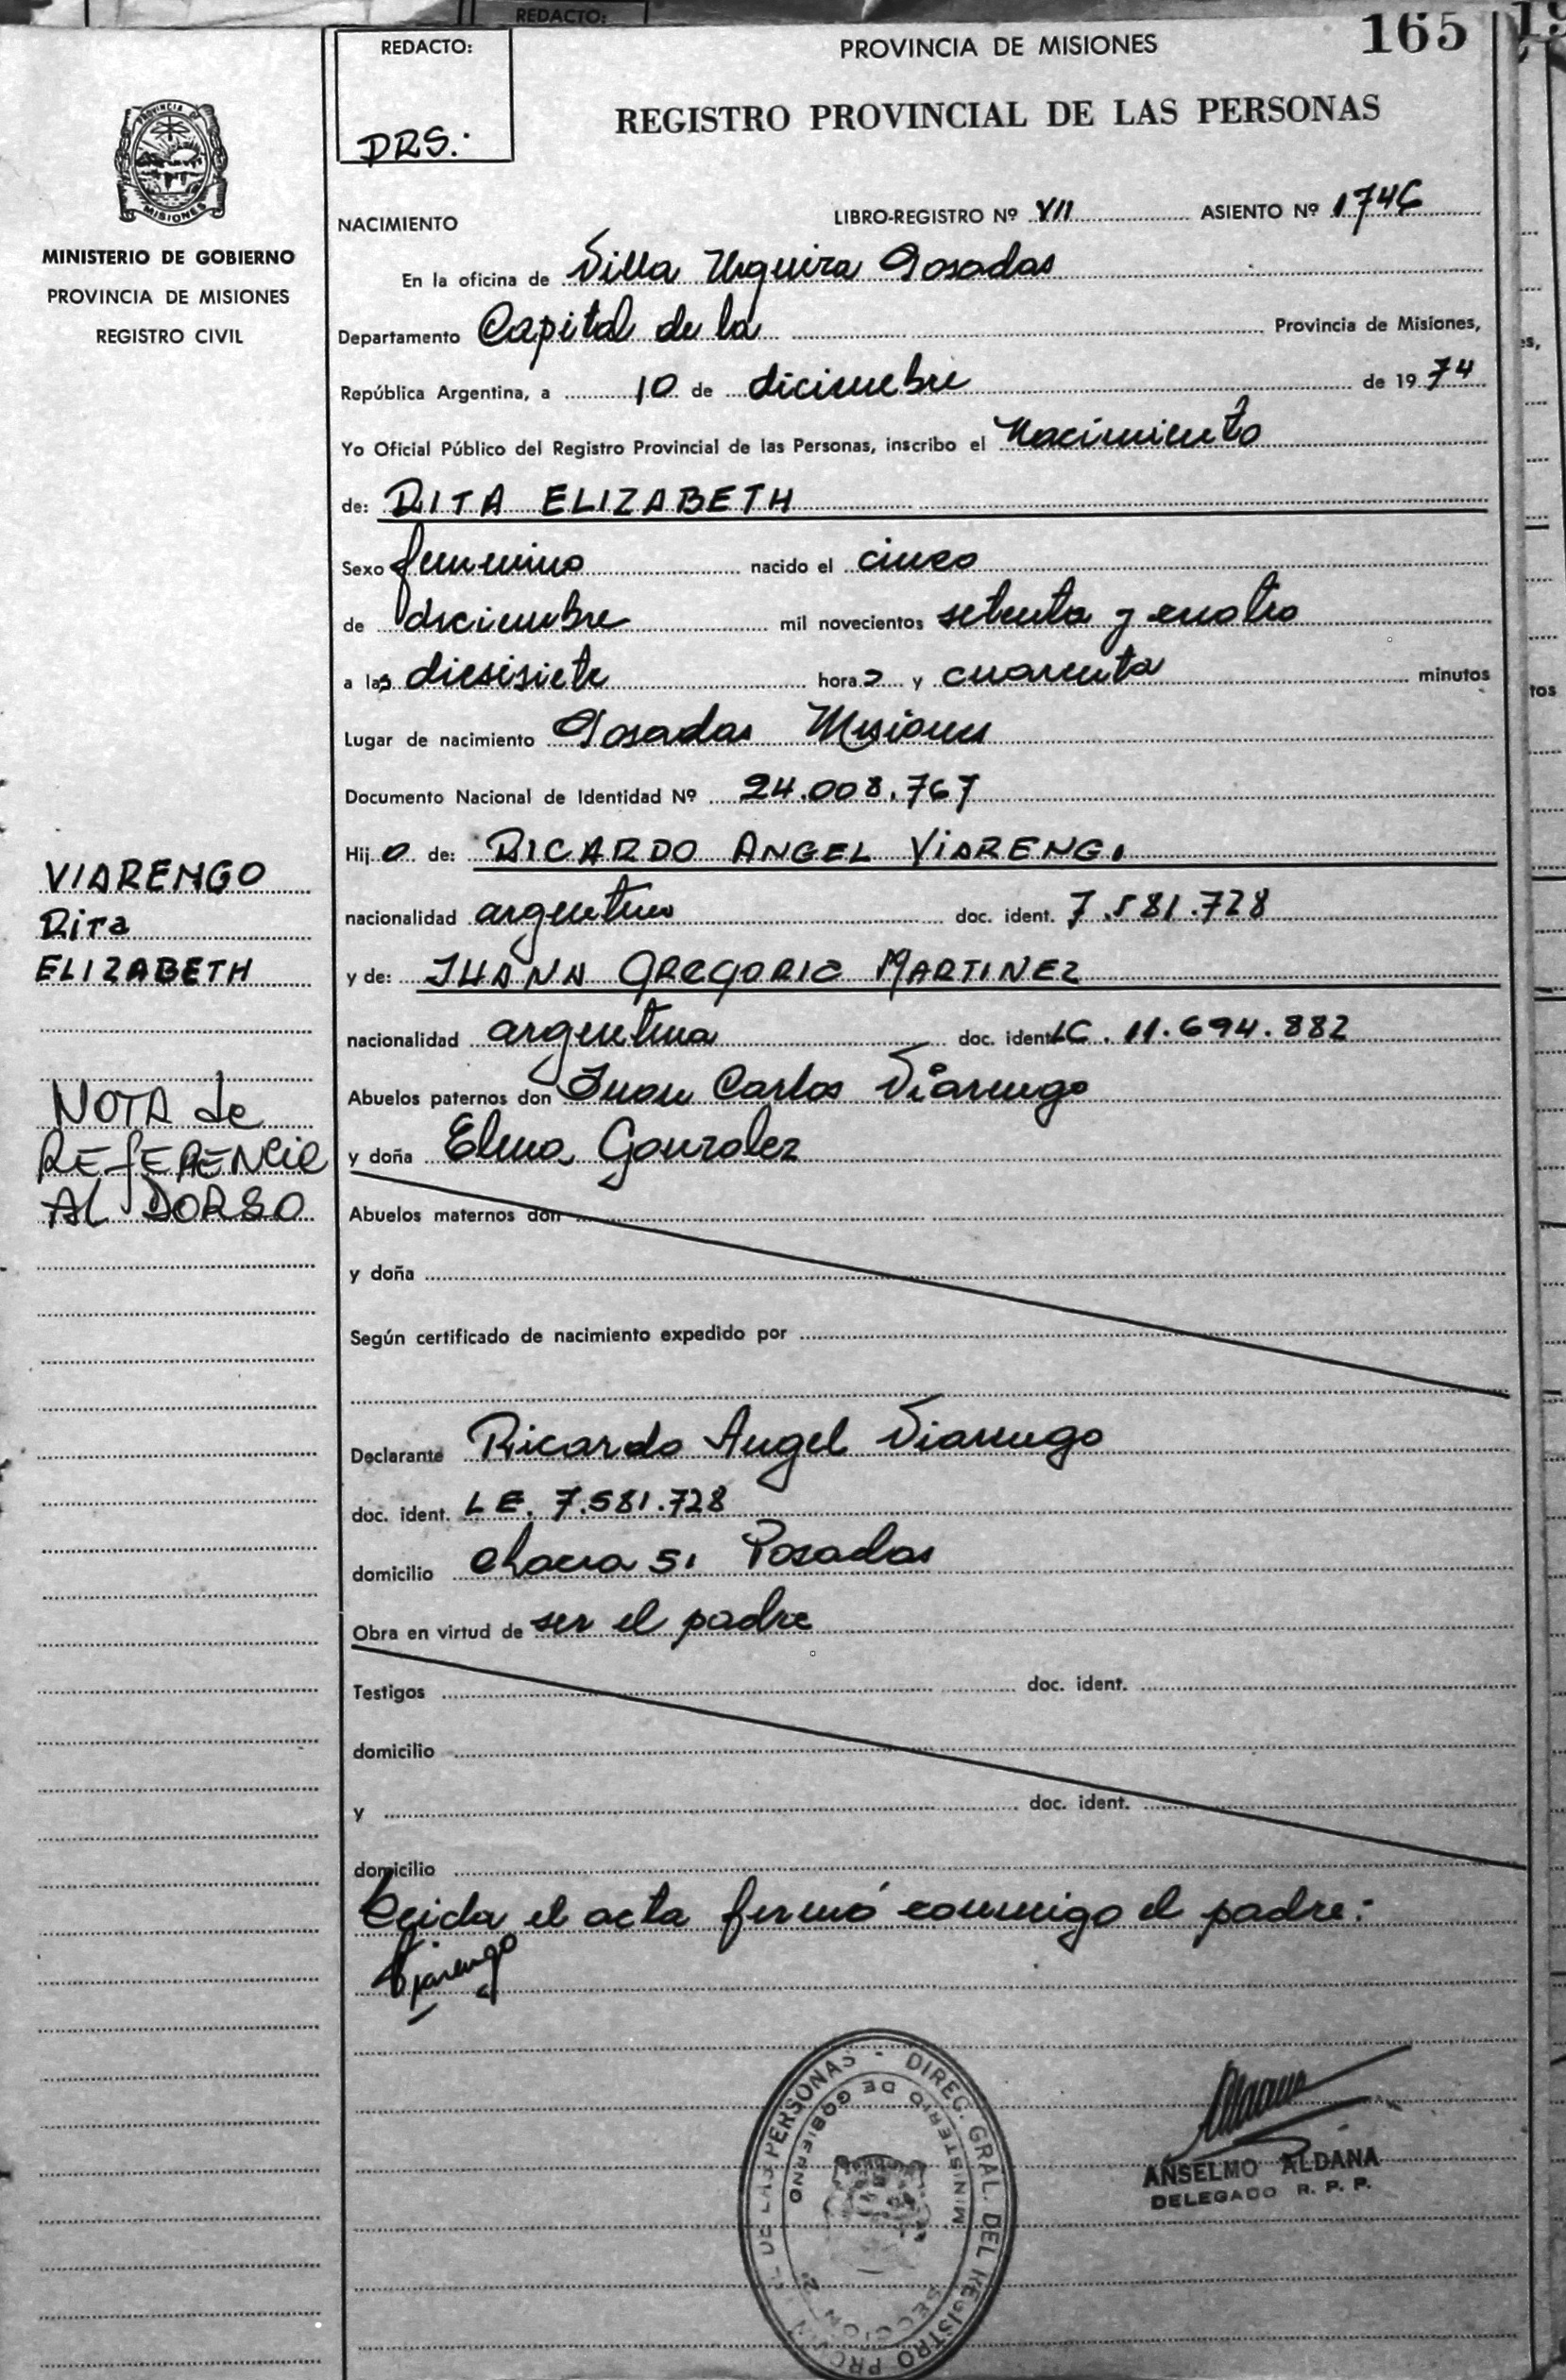 REDACTO:
165
REDACTO:
DRS.
PROVINCIA DE MISIONES
REGISTRO PROVINCIAL DE LAS PERSONAS
PROVINCIA DE
MISIONES
MINISTERIO DE GOBIERNO
PROVINCIA DE MISIONES
REGISTRO CIVIL
NACIMIENTO
LIBRO-REGISTRO Nº VII ASIENTO Nº 1746
En la oficina de Villa Urquiza Posadas
Departamento Capital de la Provincia de Misiones,
República Argentina, a 10 de diciembre de 1974
Yo Oficial Público del Registro Provincial de las Personas, inscribo el Nacimiento
de: RITA ELIZABETH
Sexo femenino nacido el cinco
de diciembre mil novecientos setenta y cuatro
a las diesisiete horas y cuarenta minutos
Lugar de nacimiento Posadas Misiones
Documento Nacional de Identidad Nº 24.008.767
Hijo de: RICARDO ANGEL VIARENGO
nacionalidad argentino doc. ident. 7.581.728
y de: JUANA GREGORIA MARTINEZ
nacionalidad argentina doc. ident LC. 11.694.882
Abuelos paternos don Juan Carlos Viarengo
y doña Elena Gonzalez
Abuelos maternos don
y doña
Según certificado de nacimiento expedido por
Declarante Ricardo Angel Viarengo
doc. ident. LE. 7.581.728
domicilio chacra 51 Posadas
Obra en virtud de ser el padre
Testigos doc. ident.
domicilio
y doc. ident.
domicilio
Leida el acta firmó conmigo el padre:
Viarengo
VIARENGO
Rita
ELIZABETH
NOTA de
REFERENCIA
AL DORSO
DIREC. GRAL. DEL REGISTRO DE LAS PERSONAS
MINISTERIO DE GOBIERNO
SECCION 2
ANSELMO ALDANA
DELEGADO R. P. P.